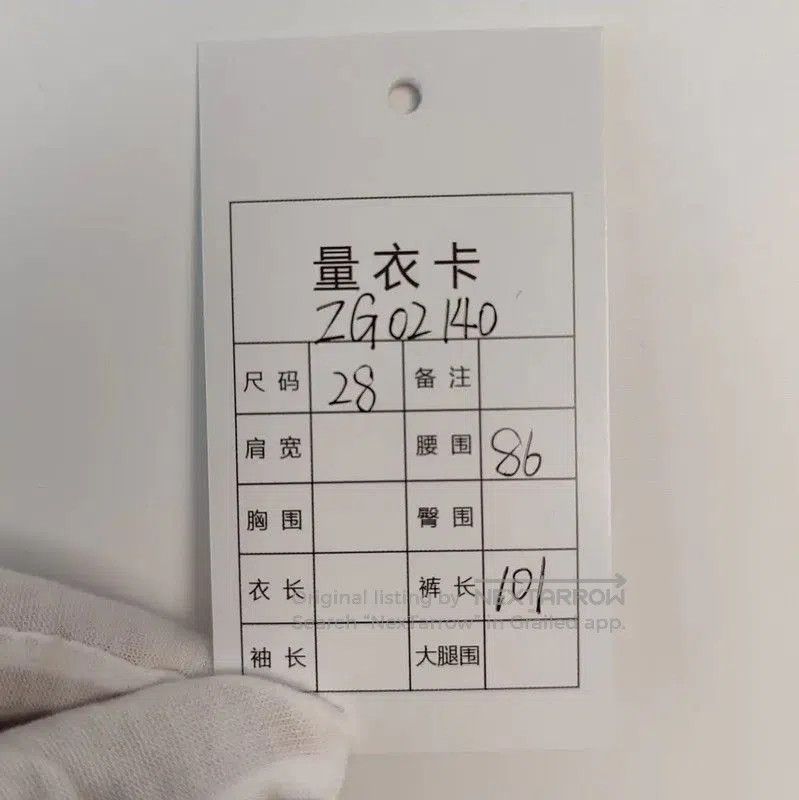 量衣卡
ZG02140
尺码 28 备注
肩宽 腰围 86
胸围 臀围
衣长 裤长 101
袖长 大腿围
Original listing by NEXTARROW
Search "NexTarrow" in Grailed app.